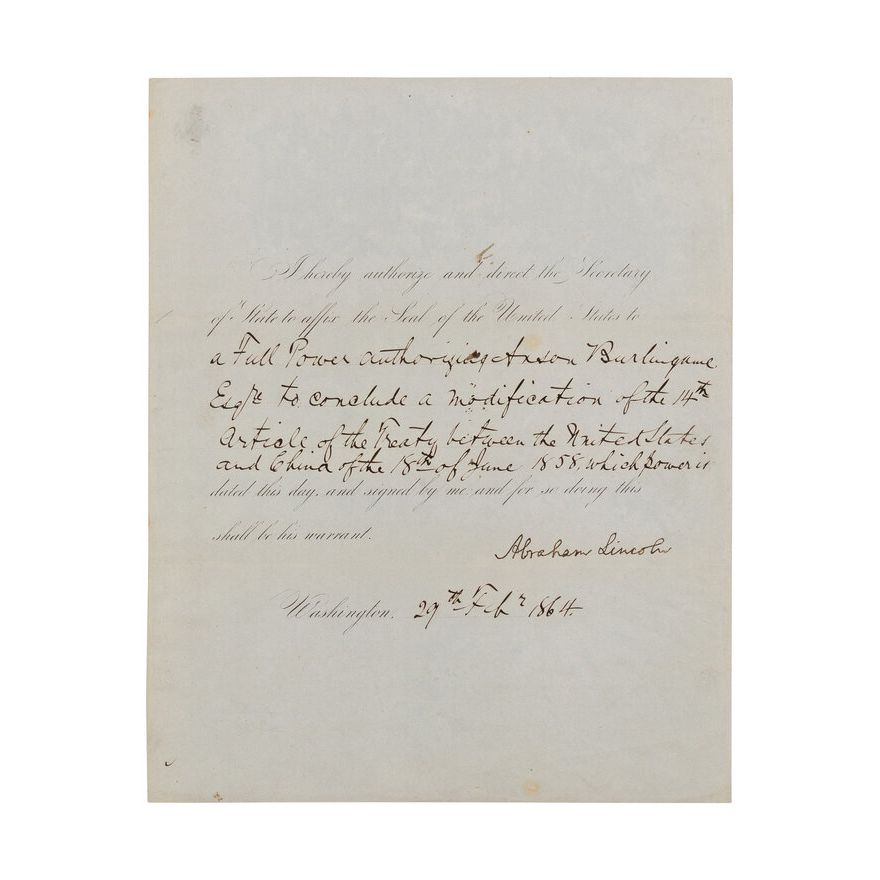 I hereby authorize and direct the Secretary
of State to affix the Seal of the United States to
a Full Power authorizing Anson Burlingame
Esqre to conclude a modification of the 14th
Article of the Treaty between the United States
and China of the 18th of June 1858, which power is
dated this day, and signed by me and for so doing this
shall be his warrant.
Abraham Lincoln
Washington, 29th Feby 1864.